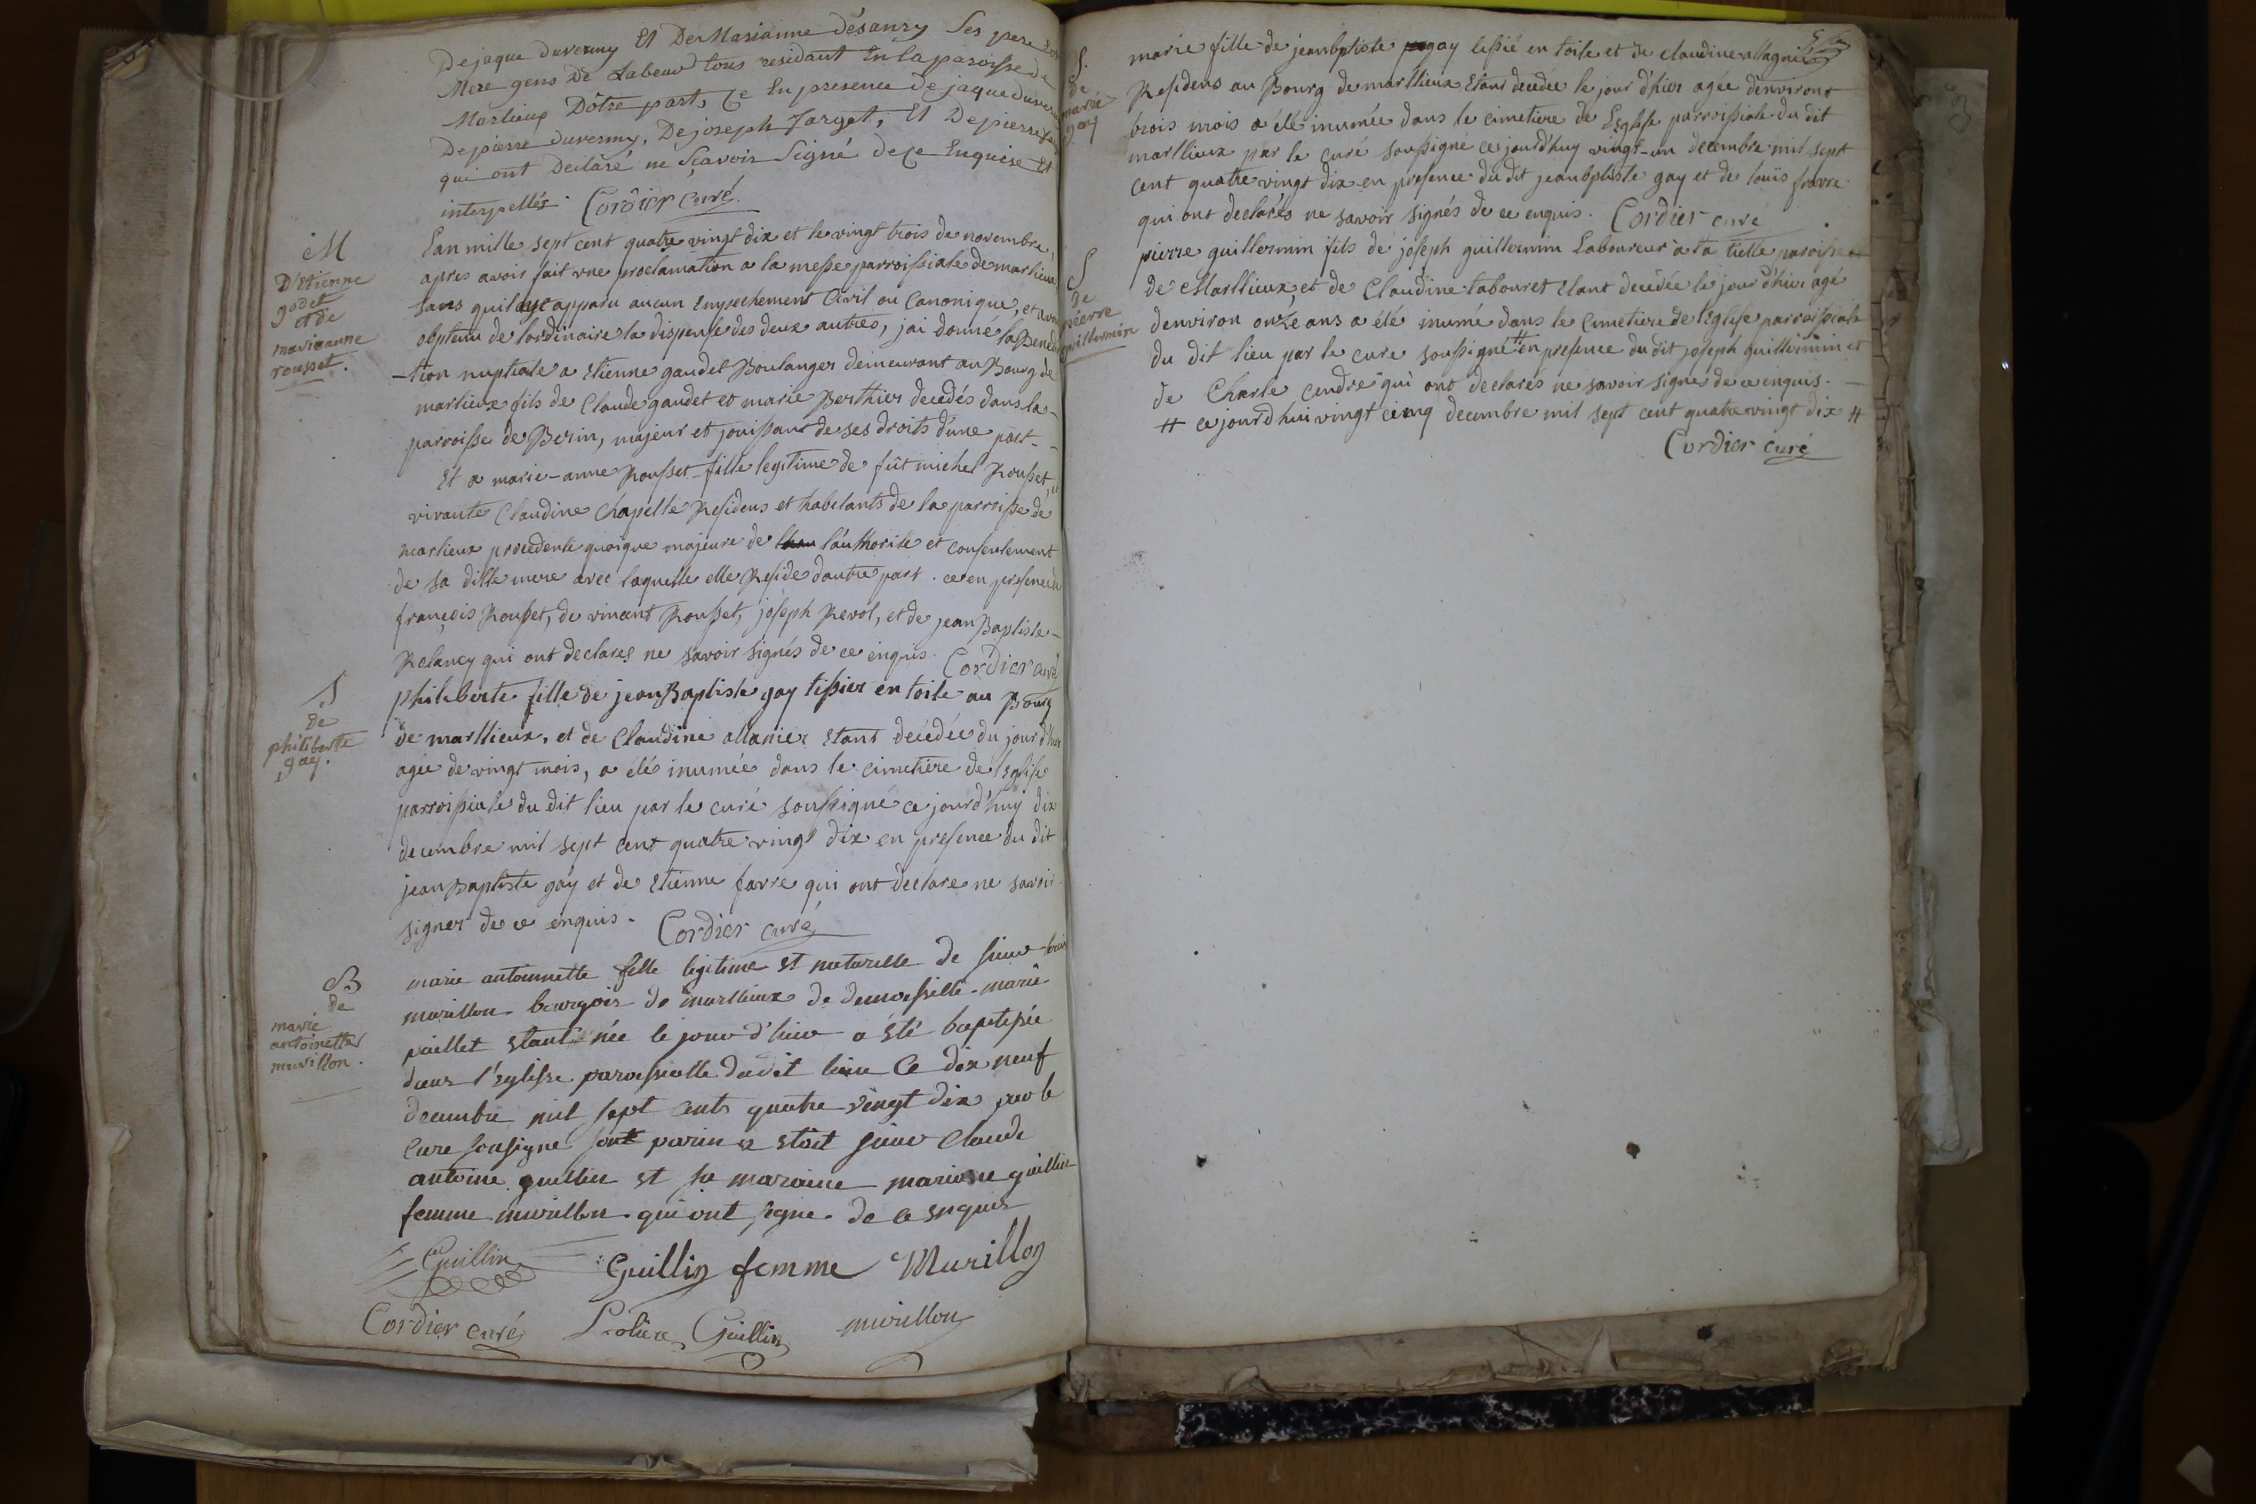 De jaque duverny Et De Marianne Désanzy Ses pere
Mere gens De Labeur tous residant En la paroisse de
Marlieux D'ôtre part, Ce En presence De jaque duver
De pierre duverny, De joseph Target, Et De pierre
qui ont Déclaré ne Sçavoir Signé de Ce Enquise Et
interpellés. Cordier curé
M
D'Etienne
godet
et de
marieanne
rousset.
Lan mille sept cent quatre vingt dix et le vingt trois de novembre
apres avoir fait une proclamation a la messe parroissiale de marlieux
sans quil aye apparu aucun Empechement Civil ou Canonique, et avoir
obptenu de lordinaire la dispense des deux autres, jai donné la Benedic
-tion nuptiale a Etienne gaudet Boulanger demeurant au Bourg de
marlieux fils de Claude gaudet et marie Berthier decedés dans la
parroisse de Besin, majeur et jouissant de ses droits d'une part-
Et a marie-anne Rousset fille legitime de fût michel Rousset, et
vivante Claudine Chapelle Residens et habitants de la parroisse de
marlieux procedente quoique majeure de l'authorité et consentement
de sa ditte mere avec laquelle elle Reside dautre part. ce en presence de
françois Rousset, de vincent Rousset, joseph Revol, et de jean Baptiste
Relancy qui ont declares ne savoir signés de ce enquis. Cordier curé
S
de
philiberte
gay.
Philiberte fille de jean Baptiste gay tissier en toile au Bourg
de marllieux, et de Claudine allanier Etant decédée du jour d'hier
agée de vingt mois, a été inumée dans le cimetiere de l'Eglise
parroissiale du dit lieu par le curé soussigné ce jourd'huy dix
decembre mil sept cent quatre vingt dix en presence du dit
jean Baptiste gay et de Etienne favre qui ont declare ne savoir
signer de ce enquis. Cordier curé
B
de
marie
antoinette
murillon.
marie antoinette fille legitime Et naturelle de sieur
murillon bourgois de marllieux de demoiselle marie
paillet Etant née le jour d'hier a été baptisée
dans l'Eglise paroissialle dudit lieu Ce dix neuf
decembre mil sept cents quatre vingt dix par le
Cure sousigne sont parin a Etoit sieur Claude
antoine guillin Et sa maraine mariane guillin
femme murillon qui ont signe de ce Enquis
Guillin Guillin femme Murillon
Cordier curé Guillin murillon
S.
de
marie
gay
marie fille de jeanbptiste gay tissié en toile et de claudine allagnié
Residens au Bourg de marllieux Etant decedée le jour d'hier agée denviront
trois mois a été inumée dans le cimetiere de L'Eglise parroissiale du dit
marllieux par le curé soussigné ce jourd'huy vingt-un decembre mil sept
cent quatre vingt dix en presence du dit jeanbptiste gay et de louis favre
qui ont declarés ne savoir signés de ce enquis. Cordier curé
S
de
pierre
guillermin
pierre guillermin fils de joseph guillermin Laboureur a la paroisse
de Marllieux, et de Claudine tabouret Etant decédée le jour d'hier agé
denviron onze ans a été inumé dans le Cimetiere de l'Eglise parroissiale
du dit lieu par le cure soussigné # en presence du dit joseph guillermin et
de Charle cendre qui ont declarés ne savoir signé de ce enquis.
# ce jourd'hui vingt cinq decembre mil sept cent quatre vingt dix #
Cordier curé